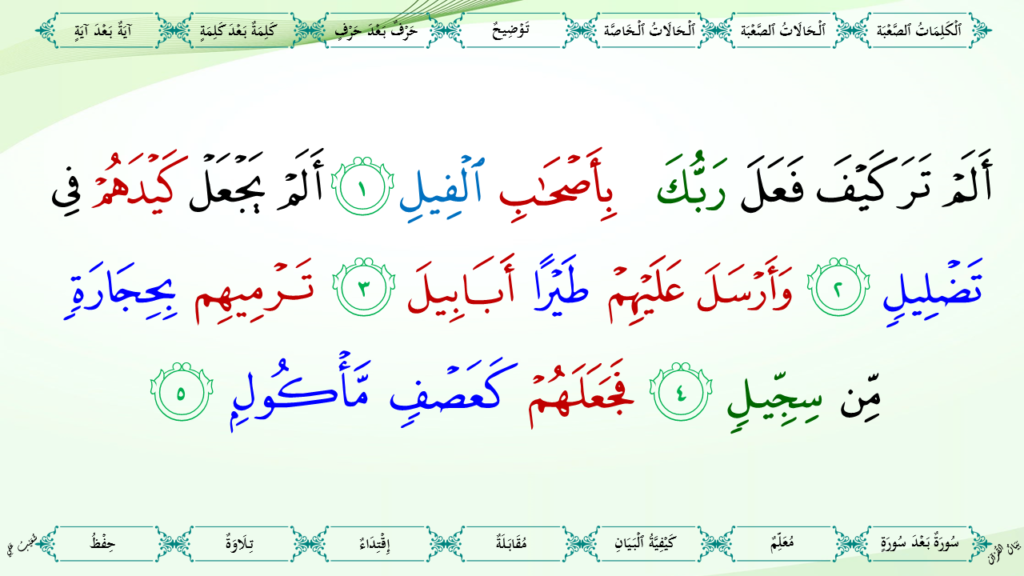 اَلْكَلِمَاتُ الصَّعْبَةُ اَلْحَالَاتُ الصَّعْبَةُ اَلْحَالَاتُ الْخَاصَّةُ تَوْضِيحٌ حَرْفٌ بَعْدَ حَرْفٍ كَلِمَةٌ بَعْدَ كَلِمَةٍ آيَةٌ بَعْدَ آيَةٍ
أَلَمۡ تَرَ كَيۡفَ فَعَلَ رَبُّكَ بِأَصۡحَٰبِ ٱلۡفِيلِ ١ أَلَمۡ يَجۡعَلۡ كَيۡدَهُمۡ فِي
تَضۡلِيلٖ ٢ وَأَرۡسَلَ عَلَيۡهِمۡ طَيۡرًا أَبَابِيلَ ٣ تَرۡمِيهِم بِحِجَارَةٖ
مِّن سِجِّيلٖ ٤ فَجَعَلَهُمۡ كَعَصۡفٖ مَّأۡكُولِۭ ٥
سُورَةٌ بَعْدَ سُورَةٍ مُعَلِّمٌ كَيْفِيَّةُ الْبَيَانِ مُقَابَلَةٌ إِقْتِدَاءٌ تِلَاوَةٌ حِفْظٌ